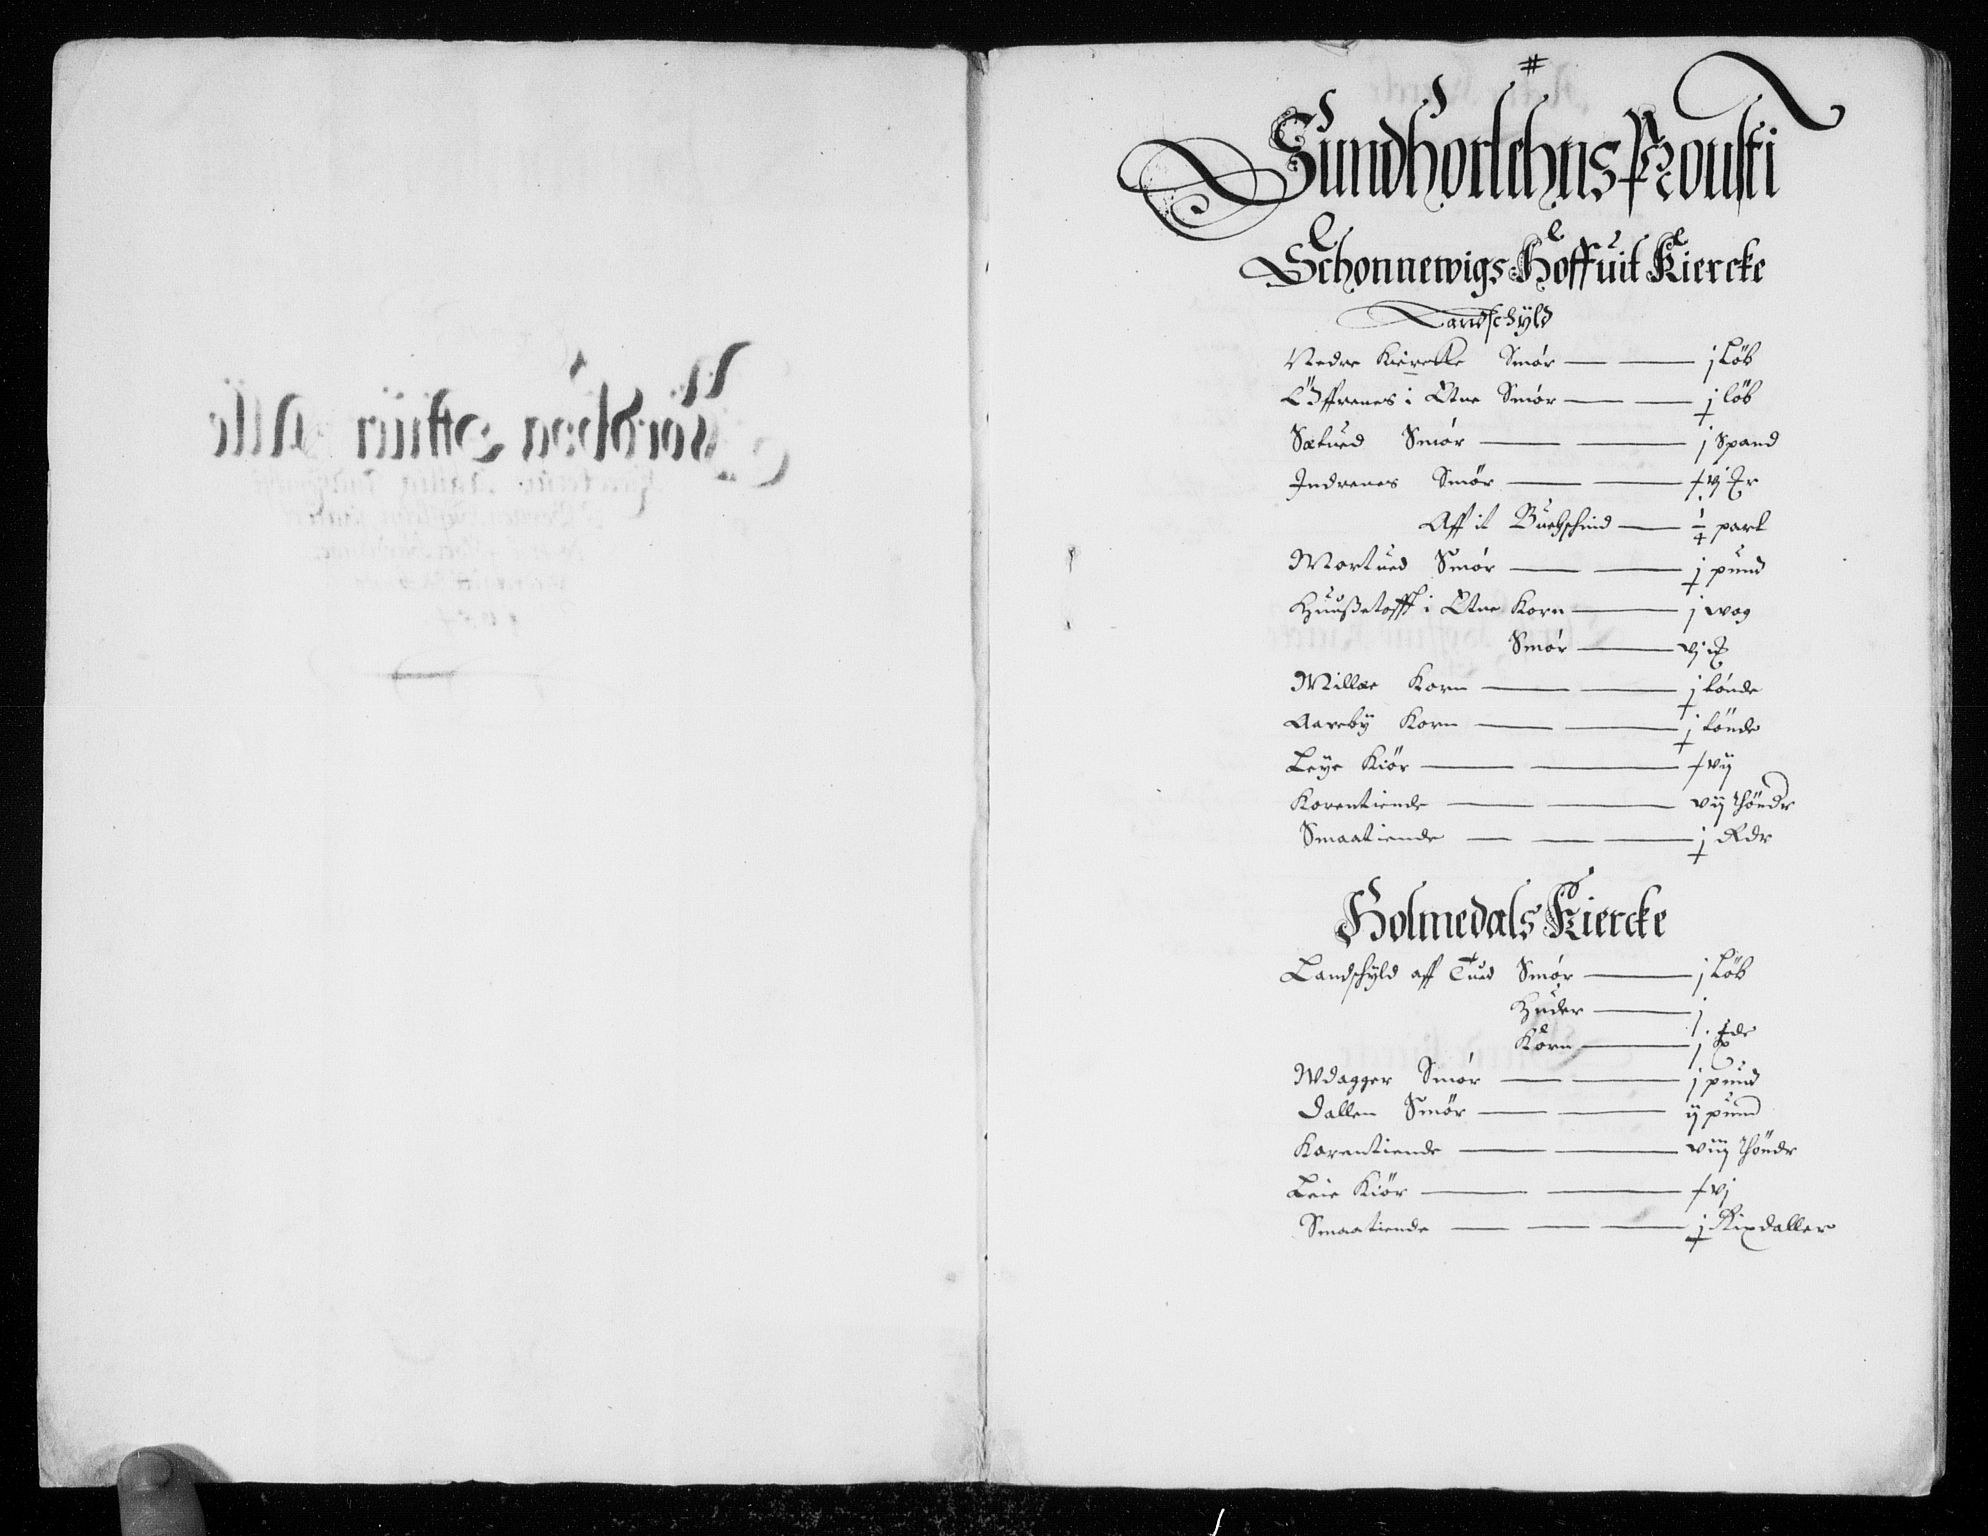 #
Sundhorlehns Prousti
Schonnewigs Hoffuit Kiercke
Landschyld
Nedre Kierche Smør — — j Löb
Öffrenes i Etne Smør — — j löb
Sætued Smør — — j Spand
Indrenes Smør — — vj
Aff it Buckschind — part
Mortued Smør — — j pund
Huußetofft i Etne Korn — j wog
Smør — vj
Millæ Korn — — j tönde
Aareby Korn — — j tönde
Leye Kiör — — vij
Korentiende — — vij thöndr
Smaatiende — — — j Rdr
Holmedals Kiercke
Landschyld aff Tued Smør — j Löb
Huder — j
Korn — j
Wdagger Smør — — j pund
Dallen Smør — — ij pund
Korentiende — — viij thöndr
Leie Kiör — — vj
Smaatiende — — — j Rixdaller